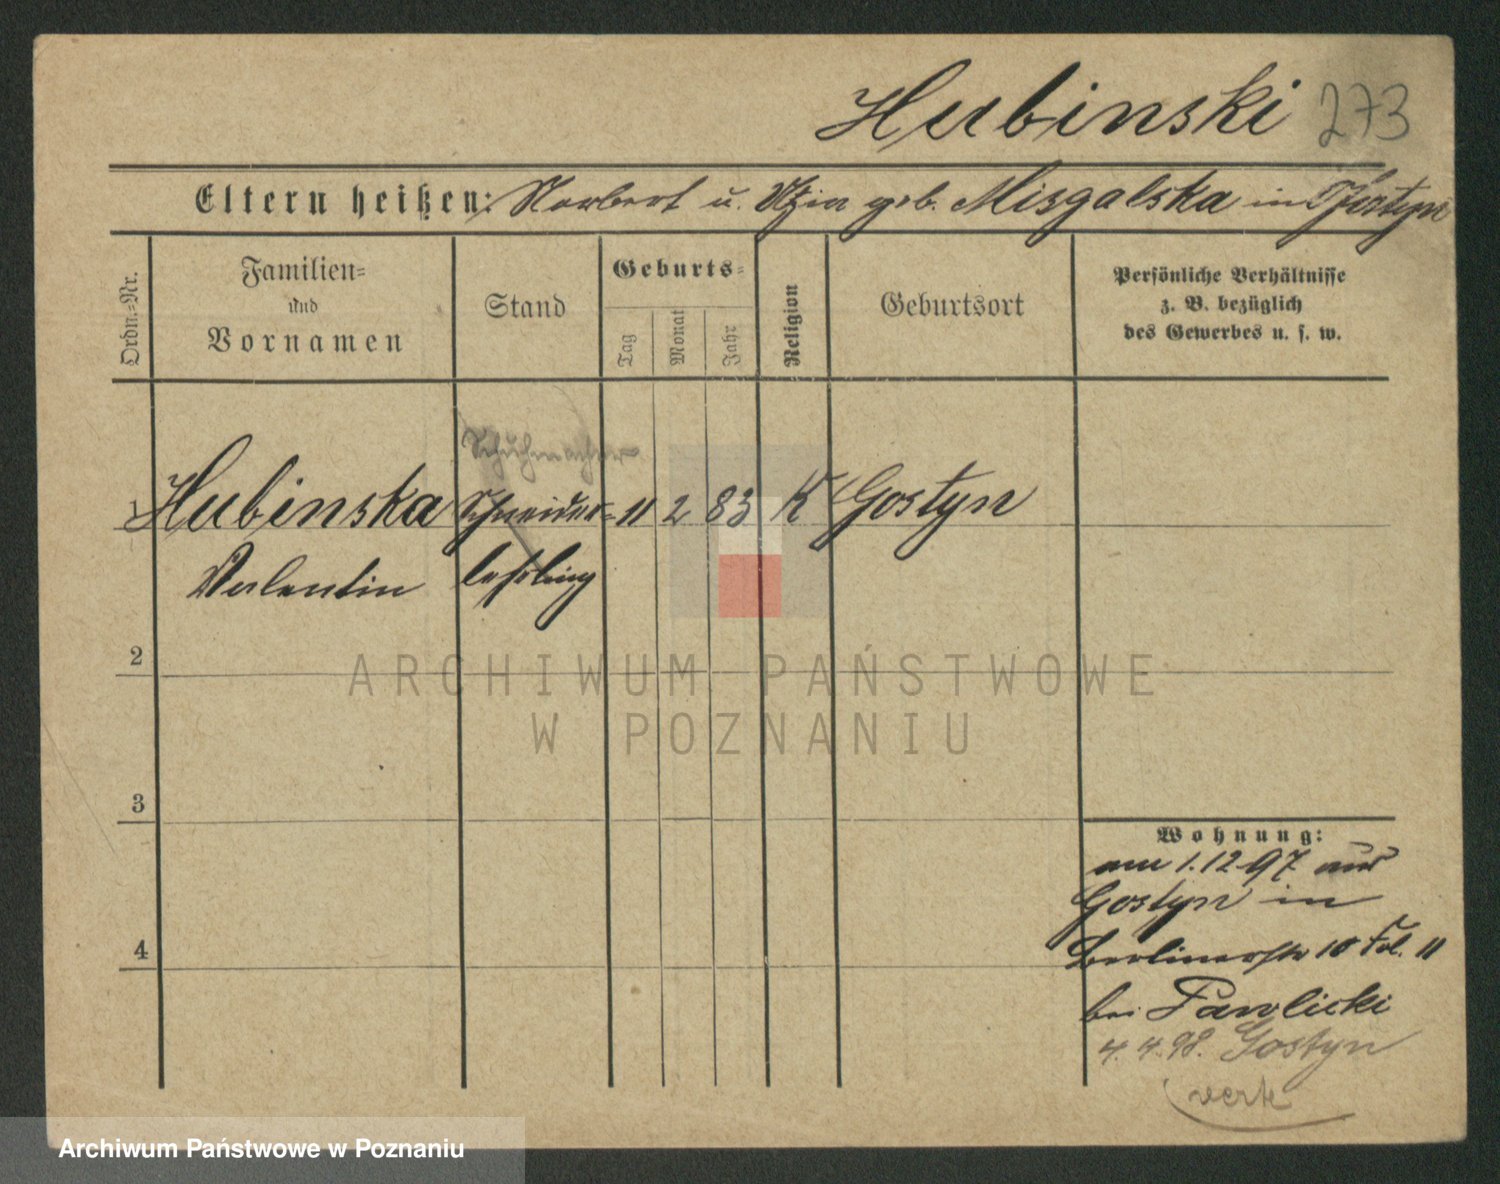 Hubinski 273
Eltern heißen: Norbert u. geb. Misgalska in Gostyn
Ordn.=Nr.
Familien=
und
Vornamen
Stand
Geburts=
Tag
Monat
Jahr
Religion
Geburtsort
Persönliche Verhältnisse
z. B. bezüglich
des Gewerbes u. s. w.
Schuhmacher
1 Hubinska Schneider= 11 2 83 K Gostyn
Valentin lehrling
2
3
4
Wohnung:
am 1.12.97 aus
Gostyn in
Berlinerstr 10 11
bei Pawlicki
4. 4. 98. Gostyn
verte
ARCHIWUM PAŃSTWOWE
W POZNANIU
Archiwum Państwowe w Poznaniu